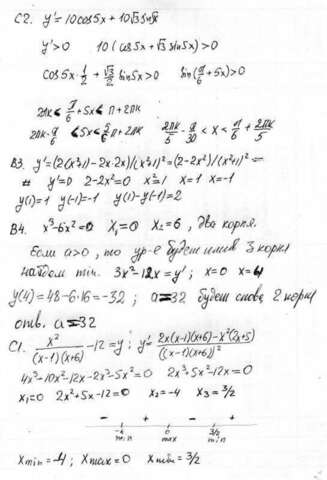 C2. y'=10cos5x+10√3sin5x
y'>0 10(cos5x+√3sin5x)>0
cos5x·1/2+√3/2 sin5x>0 sin(π/6+5x)>0
2πk<π/6+5x<π+2πk
2πk-π/6<5x<5/6π+2πk 2πk/5-π/30<x<π/6+2πk/5
B3. y'=(2(x²+1)-2x·2x)/(x²+1)²=(2-2x²)/(x²+1)²=
y'=0 2-2x²=0 x²=1 x=1 x=-1
y(1)=1 y(-1)=-1 y(1)-y(-1)=2
B4. x³-6x²=0 x₁=0 x₂=6, два корня.
Если a>0, то ур-е будет иметь 3 корня
найдем min. 3x²-12x=y'; x=0 x=4
y(4)=48-6·16=-32; a=32 будет снова 2 корня
отв. a=32
C1. x²/((x-1)(x+6))-12=y; y'=(2x(x-1)(x+6)-x²(2x+5))/((x-1)(x+6))²
4x³+10x²-12x-2x³-5x²=0 2x³+5x²-12x=0
x₁=0 2x²+5x-12=0 x₂=-4 x₃=3/2
- + - +
-4 0 3/2
min max min
xmin=-4; xmax=0 xmin=3/2